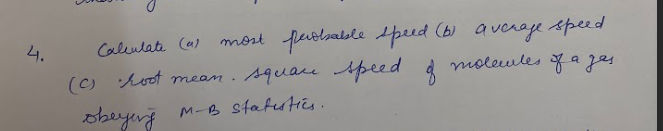 4. Calculate (a) most probable speed (b) average speed
(c) root mean. square speed of molecules of a gas
obeying M-B statistics.